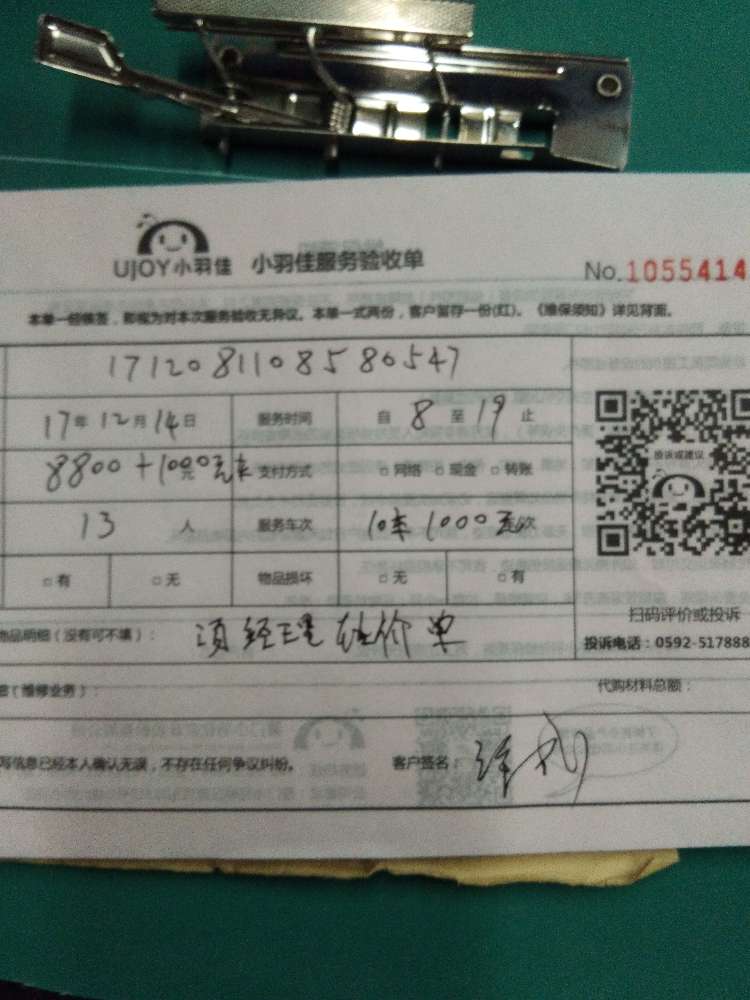 UJOY小羽佳 小羽佳服务验收单
No.1055414
本单一经签签，即视为对本次服务验收无异议。本单一式两份，客户留存一份(红)。《维保须知》详见背面。
17120811085 80547
17年12月14日 服务时间 自 8 至 19 止
8800+1000元车 支付方式 □网络 □现金 □转账
13 人 服务车次 10车1000元 次
□有 □无 物品损坏 □无 □有
投诉或建议
扫码评价或投诉
物品明细（没有可不填）： 项经理 单
投诉电话：0592-517888
（维修业务）： 代购材料总额：
写信息已经本人确认无误，不存在任何争议纠纷。 客户签名：